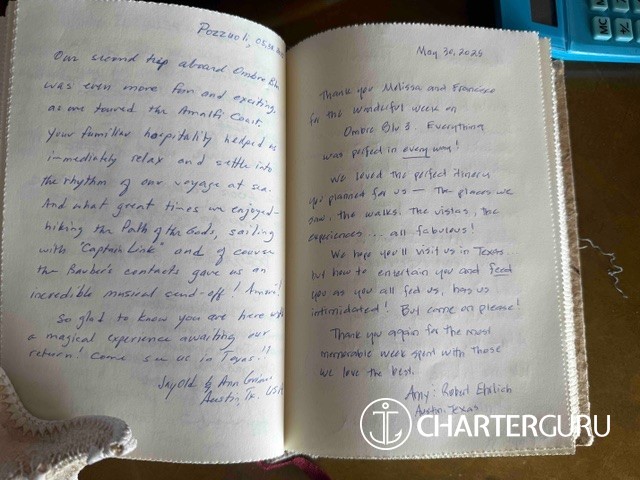 Pozzuoli, 05.30.
Our second trip aboard Ombre Blu
was even more fun and exciting,
as we toured the Amalfi Coast.
Your familiar hospitality helped us
immediately relax and settle into
the rhythm of our voyage at sea.
And what great times we enjoyed-
hiking the Path of the Gods, sailing
with "Captain Link" and of course
the Barber's contacts gave us an
incredible musical send-off!
So glad to know you are here with
a magical experience awaiting our
return! Come see us in Texas!!
& Ann
Austin, Tx. USA
May 30, 2025
Thank you Melissa and Francisco
for the wonderful week on
Ombre Blu 3. Everything
was perfect in every way!
We loved the perfect itinery
you planned for us — The places we
saw, the walks. The vistas, the
experiences ... all fabulous!
We hope you'll visit us in Texas...
but how to entertain you and feed
you as you all fed us, has us
intimidated! But come on please!
Thank you again for the most
memorable week spent with those
we love the best.
Amy & Robert Ehrlich
Austin, Texas
CHARTERGURU